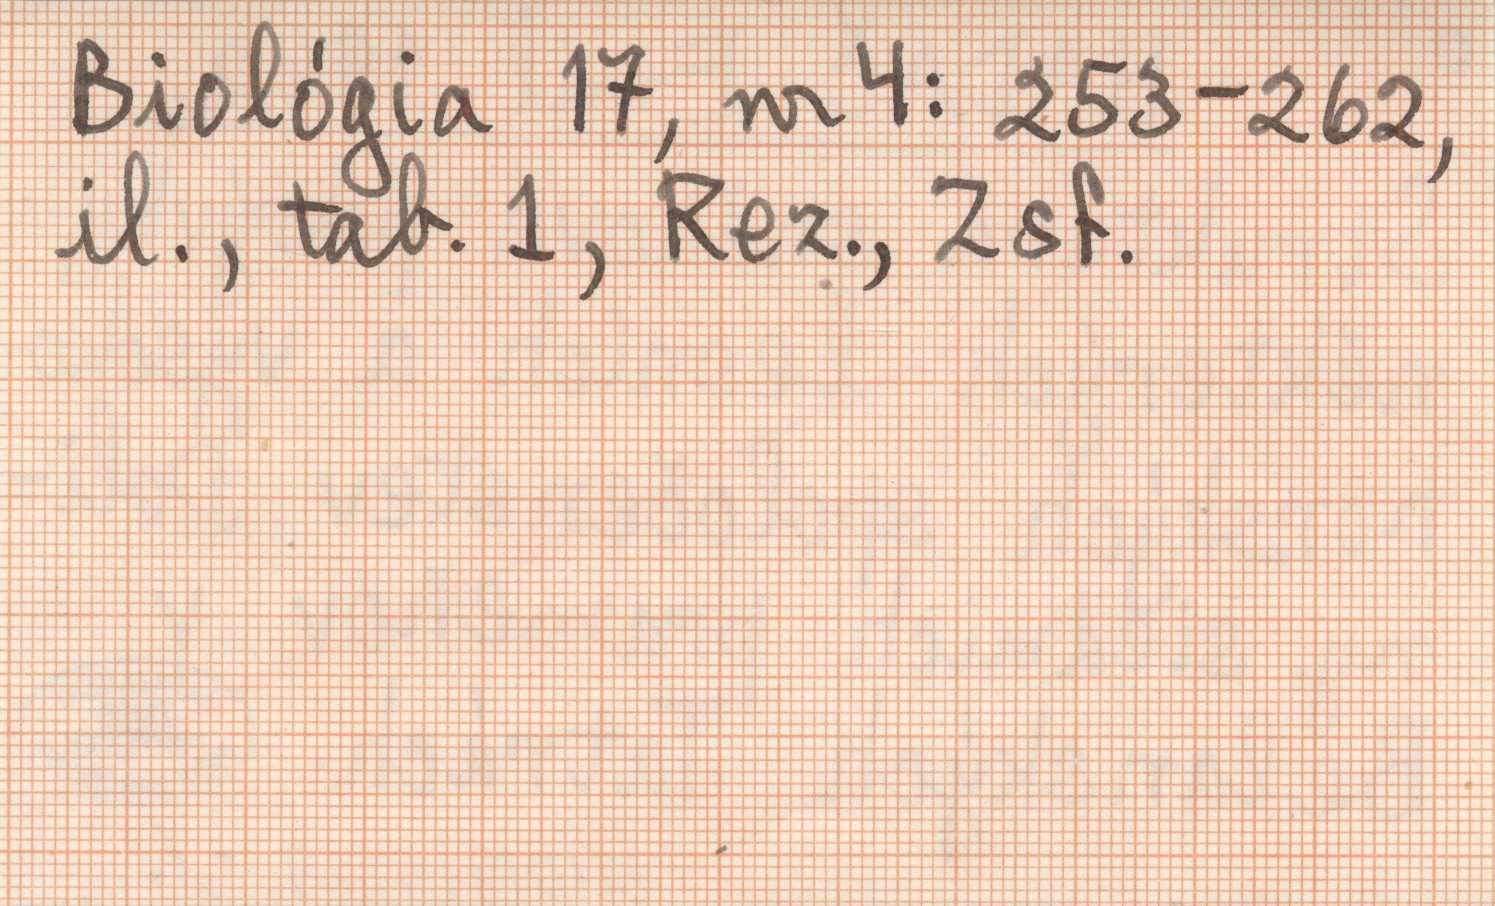 Biológia 17, nr 4: 253-262,
il., tab. 1, Rez., Zsf.